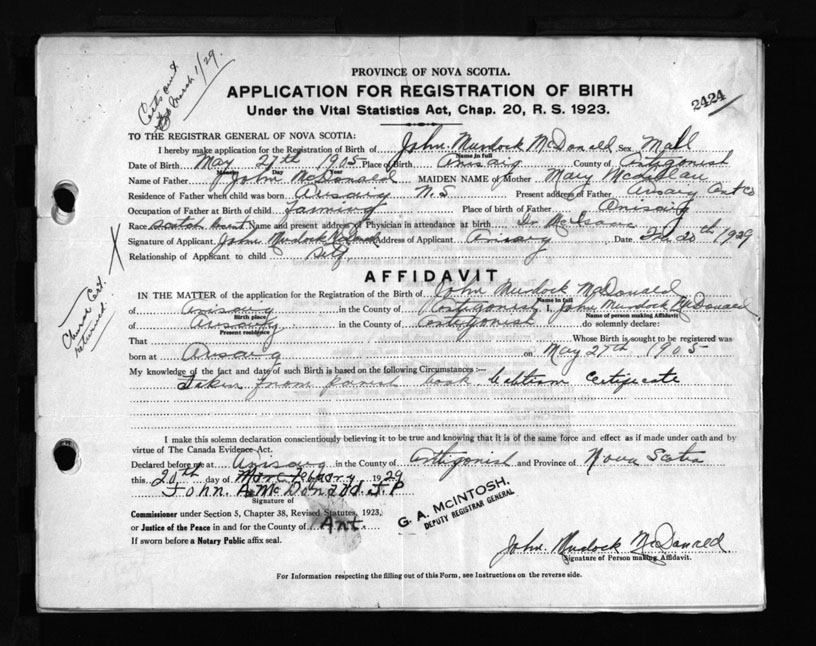 Certs out
March 1/29.
PROVINCE OF NOVA SCOTIA.
APPLICATION FOR REGISTRATION OF BIRTH
Under the Vital Statistics Act, Chap. 20, R. S. 1923.
2424
TO THE REGISTRAR GENERAL OF NOVA SCOTIA:
I hereby make application for the Registration of Birth of John Murdock McDonald Sex Male
Name in full
Date of Birth May 27th 1905 Place of Birth Arisaig County of Antigonish
Month Day Year
Name of Father John McDonald MAIDEN NAME of Mother Mary McLellan
Residence of Father when child was born Arisaig N.S Present address of Father Arisaig Ant Co
Occupation of Father at Birth of child Farming Place of birth of Father Arisaig
Race Scotch Name and present address of Physician in attendance at birth Dr McIsaac
Signature of Applicant John Murdock McDonald Address of Applicant Arisaig Date Feb 20th 1929
Relationship of Applicant to child Self
AFFIDAVIT
IN THE MATTER of the application for the Registration of the Birth of John Murdock McDonald
Name in full
of Arisaig in the County of Antigonish I, John Murdock McDonald
Birth place Name of person making Affidavit
of Arisaig in the County of Antigonish do solemnly declare:
Present residence
That Whose Birth is sought to be registered was
born at Arisaig on May 27th 1905
My knowledge of the fact and date of such Birth is based on the following Circumstances :—
Taken from parish book Certificate
Church Cert.
returned.
I make this solemn declaration conscientiously believing it to be true and knowing that it is of the same force and effect as if made under oath and by
virtue of The Canada Evidence Act.
Declared before me at Arisaig in the County of Antigonish and Province of Nova Scotia
this 20th day of February 1929
John. A. McDonald J.P
Signature of
Commissioner under Section 5, Chapter 38, Revised Statutes, 1923,
or Justice of the Peace in and for the County of Ant.
If sworn before a Notary Public affix seal.
G. A. McINTOSH,
DEPUTY REGISTRAR GENERAL
John Murdock McDonald
Signature of Person making Affidavit.
For Information respecting the filling out of this Form, see Instructions on the reverse side.